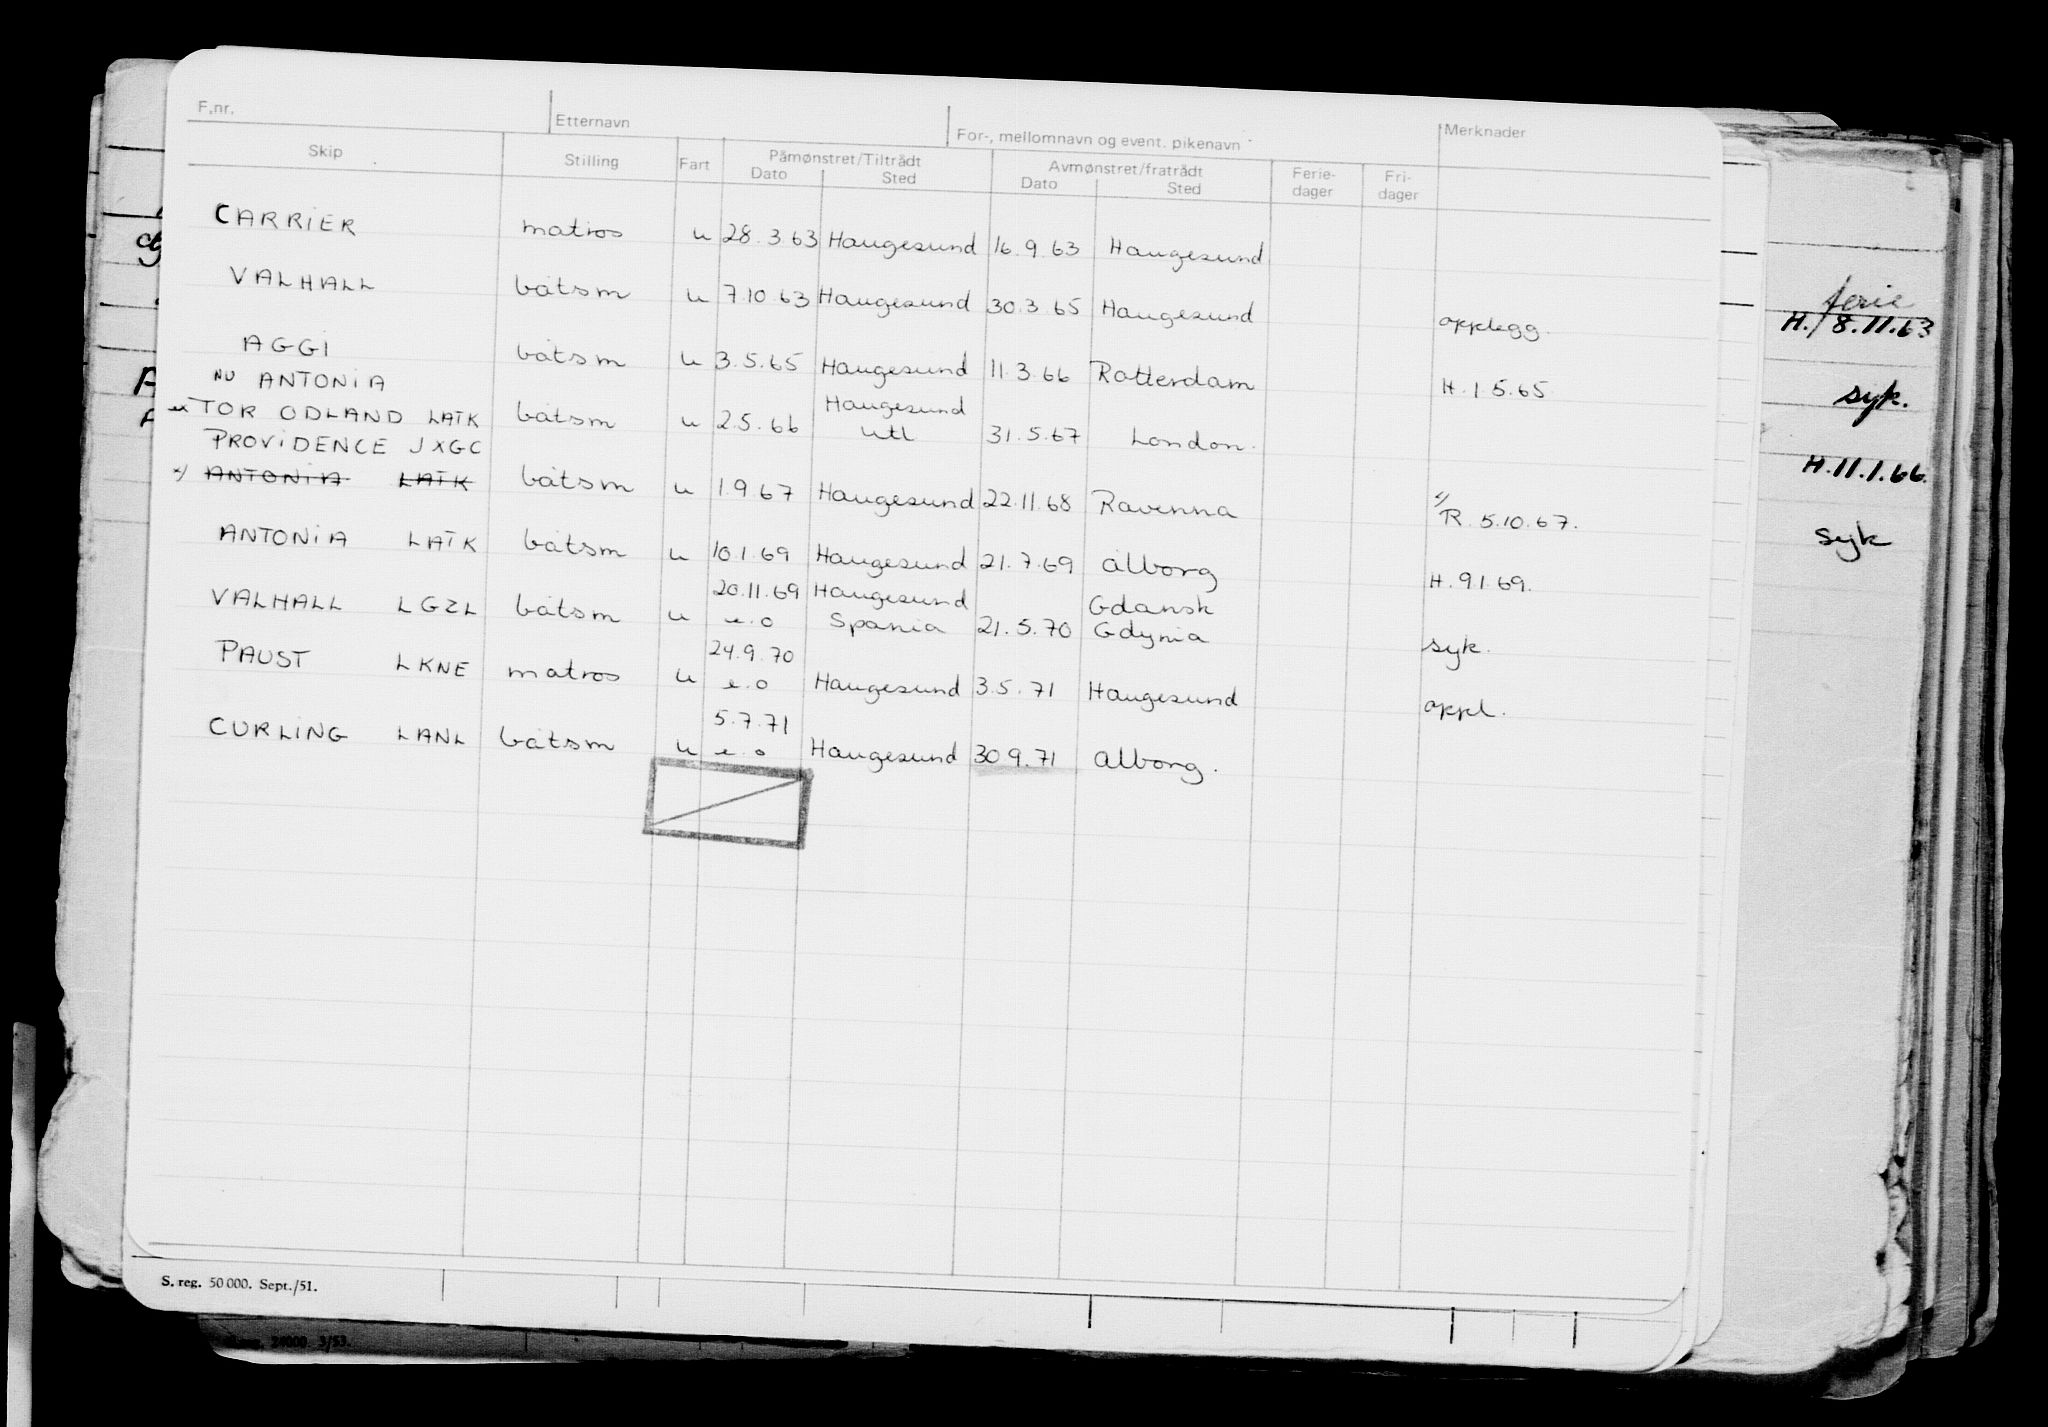 F.nr. Etternavn For-, mellomnavn og event. pikenavn Merknader
Skip Stilling Fart Påmønstret/Tiltrådt Avmønstret/fratrådt Ferie- Fri-
Dato Sted Dato Sted dager dager
CARRIER matros u 28.3.63 Haugesund 16.9.63 Haugesund
VALHALL båtsm u 7.10.63 Haugesund 30.3.65 Haugesund opplegg.
AGGI båtsm u 3.5.65 Haugesund 11.3.66 Rotterdam H.1.5.65
NU ANTONIA
ex TOR ODLAND LATK båtsm u 2.5.66 Haugesund utl 31.5.67 London.
PROVIDENCE JXGC
x) ANTONIA LATK båtsm u 1.9.67 Haugesund 22.11.68 Ravenna x) R. 5.10.67.
ANTONIA LATK båtsm u 10.1.69 Haugesund 21.7.69 Ålborg H.9.1.69.
VALHALL LGZL båtsm u 20.11.69 e.o Haugesund Spania 21.5.70 Gdansk Gdynia syk.
PAUST LKNE matros u 24.9.70 e.o Haugesund 3.5.71 Haugesund oppl.
CURLING LANL båtsm u 5.7.71 e.o Haugesund 30.9.71 Ålborg.
S. reg. 50 000. Sept./51.
24000 3/53.
ferie
H./8.11.63
syk.
H.11.1.66.
syk